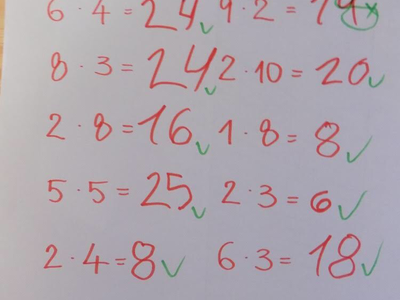 6 · 4 = 24 9 · 2 =
8 · 3 = 24 2 · 10 = 20
2 · 8 = 16 1 · 8 = 8
5 · 5 = 25 2 · 3 = 6
2 · 4 = 8 6 · 3 = 18